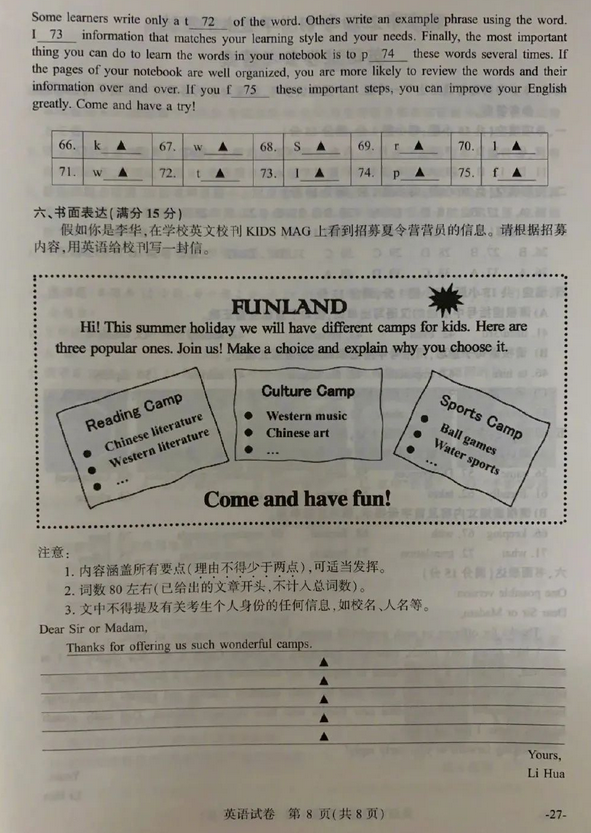 Some learners write only a t 72 of the word. Others write an example phrase using the word.
I 73 information that matches your learning style and your needs. Finally, the most important
thing you can do to learn the words in your notebook is to p 74 these words several times. If
the pages of your notebook are well organized, you are more likely to review the words and their
information over and over. If you f 75 these important steps, you can improve your English
greatly. Come and have a try!
66. k ▲ 67. w ▲ 68. S ▲ 69. r ▲ 70. l ▲
71. w ▲ 72. t ▲ 73. I ▲ 74. p ▲ 75. f ▲
六、书面表达(满分 15 分)
假如你是李华,在学校英文校刊 KIDS MAG 上看到招募夏令营营员的信息。请根据招募
内容,用英语给校刊写一封信。
FUNLAND
Hi! This summer holiday we will have different camps for kids. Here are
three popular ones. Join us! Make a choice and explain why you choose it.
Reading Camp
● Chinese literature
● Western literature
● ...
Culture Camp
● Western music
● Chinese art
● ...
Sports Camp
● Ball games
● Water sports
● ...
Come and have fun!
注意:
1. 内容涵盖所有要点(理由不得少于两点),可适当发挥。
2. 词数 80 左右(已给出的文章开头,不计入总词数)。
3. 文中不得提及有关考生个人身份的任何信息,如校名、人名等。
Dear Sir or Madam,
Thanks for offering us such wonderful camps.
▲
▲
▲
▲
▲
Yours,
Li Hua
英语试卷 第 8 页(共 8 页)
-27-